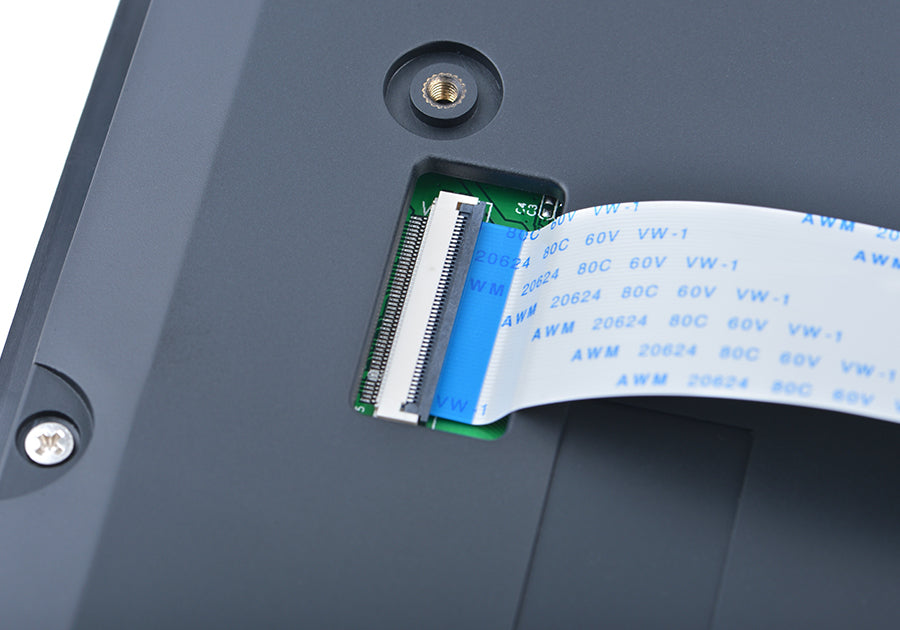 80C 60V VW-1 AWM 20
20624 80C 60V VW-1 AWM
WM 20624 80C 60V VW-1
AWM 20624 80C 60V VW-1
AWM 20624 80C 60V VW-1
AWM 20624 80C 60V VW-1
VW-1 AWM 20624 80C 60V
5